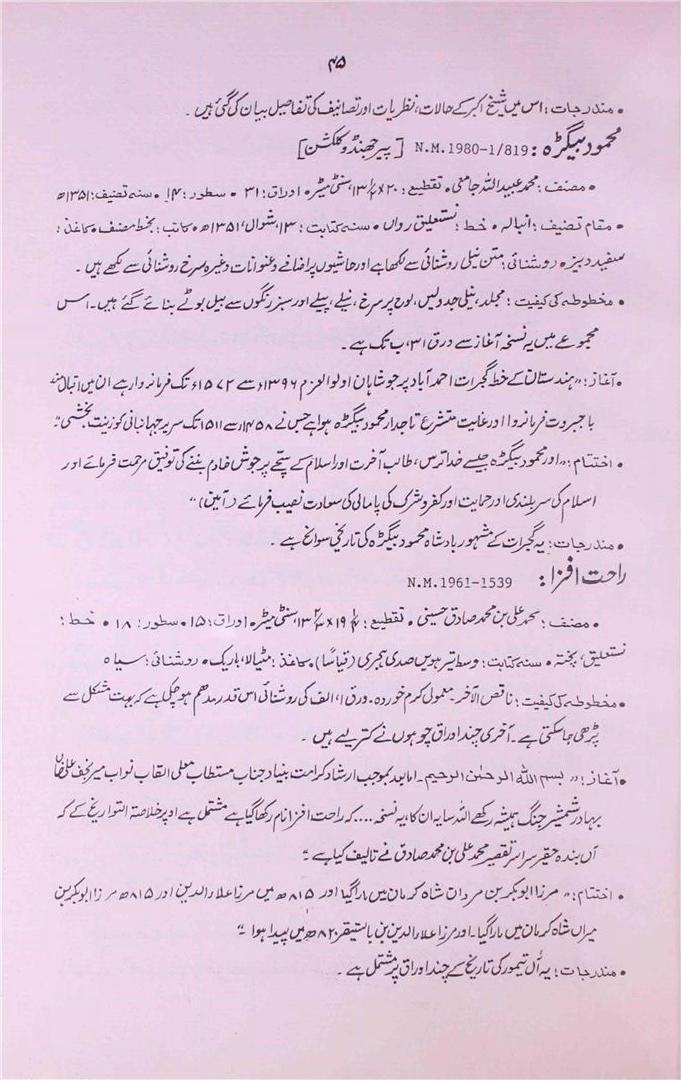 ۴۵
• مندرجات: اس میں شیخ اکبر کے حالات، نظریات اور تصانیف کی تفاصیل بیان کی گئی ہیں۔
محمود بیگڑہ: N.M.1980-1/819 [پیر جھنڈو کلکشن]
• مصنف: محمد عبید اللہ جامعی • تقطیع: ۲۰ × ۱۳½ سنٹی میٹر • اوراق: ۳۱ • سطور: ۱۴ • سنہ تصنیف: ۱۳۵۱ھ
• مقام تصنیف: انبالہ • خط: نستعلیق رواں • سنہ کتابت: ۱۳ شوال، ۱۳۵۱ھ • کاتب: بخط مصنف • کاغذ:
سفید دبیز • روشنائی: متن نیلی روشنائی سے لکھا ہے اور حاشیوں پر اضافے و عنوانات وغیرہ سرخ روشنائی سے لکھے ہیں۔
• مخطوطہ کی کیفیت: مجلد، نیلی جدولیں، لوح پر سرخ، نیلے، پیلے اور سبز رنگوں سے بیل بوٹے بنائے گئے ہیں۔ اس
مجموعے میں یہ نسخہ آغاز سے ورق ۳۱، ب تک ہے۔
• آغاز: "ہندستان کے خطہ گجرات احمد آباد پر جو شاہان اولوالعزم ۱۳۹۶ء سے ۱۵۷۲ء تک فرمانروا رہے ان میں اقبال مند
با جبروت فرمانروا اور غایت متشرع تاجدار محمود بیگڑہ ہوا ہے جس نے ۱۴۵۸ء سے ۱۵۱۱ تک سریر جہانبانی کو زینت بخشی"
• اختتام: "اور محمود بیگڑہ جیسے خدا ترس، طالب آخرت اور اسلام کے سچے پر جوش خادم بننے کی توفیق مرحمت فرمائے اور
اسلام کی سربلندی اور حمایت اور کفر و شرک کی پامالی کی سعادت نصیب فرمائے (آمین)"
• مندرجات: یہ گجرات کے مشہور بادشاہ محمود بیگڑہ کی تاریخی سوانح ہے۔
راحت افزا: N.M.1961-1539
• مصنف: محمد علی بن محمد صادق حسینی • تقطیع: ۱۹ × ۱۳ سنٹی میٹر • اوراق: ۱۵ • سطور: ۱۸ • خط:
نستعلیق، پختہ • سنہ کتابت: وسط تیرہویں صدی ہجری (قیاسًا) • کاغذ: مٹیالا، باریک • روشنائی: سیاہ
• مخطوطہ کی کیفیت: ناقص الآخر۔ معمولی کرم خوردہ۔ ورق ۱، الف کی روشنائی اس قدر مدھم ہو چکی ہے کہ بہت مشکل سے
پڑھی جا سکتی ہے۔ آخری چند اوراق چوہوں نے کترے ہیں۔
• آغاز: "بسم اللہ الرحمٰن الرحیم۔ اما بعد بموجب ارشاد کرامت بنیاد جناب مستطاب معلی القاب نواب میر نجف علی خان
بہادر شمشیر جنگ ہمیشہ رکھے اللہ سایہ ان کا، یہ نسخہ .... کہ راحت افزا نام رکھا گیا ہے مشتمل ہے اوپر خلاصۃ التواریخ کے کہ
آں بندہ حقیر سراسر تقصیر محمد علی بن محمد صادق نے تالیف کیا ہے"
• اختتام: "مرزا ابوبکر بن مردان شاہ کرمان میں مارا گیا اور ۸۱۵ھ میں مرزا علاء الدین اور ۸۱۵ھ مرزا ابوبکر بن
میراں شاہ کرمان میں مارا گیا۔ اور مرزا علاء الدین بن بالسیتغر ۸۲۰ھ میں پیدا ہوا۔"
• مندرجات: یہ آل تیمور کی تاریخ کے چند اوراق پر مشتمل ہے۔